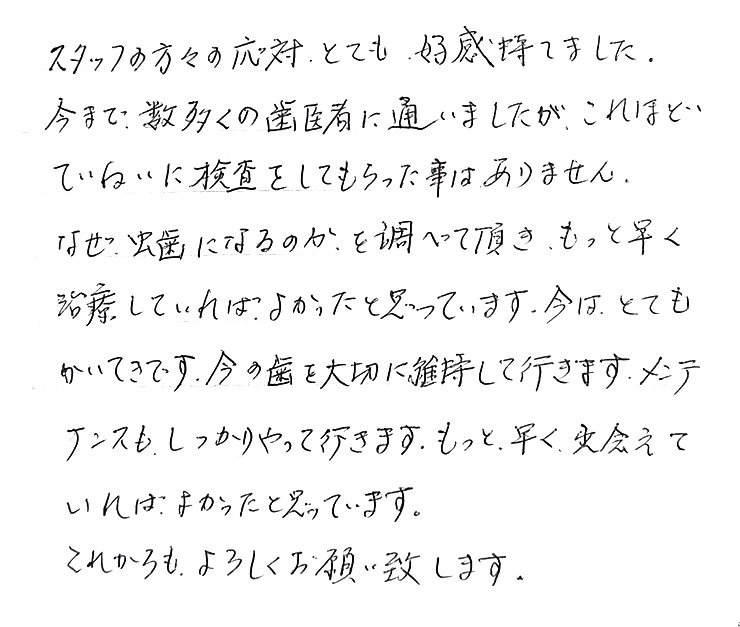 スタッフの方々の応対、とても、好感持てました。
今まで、数多くの歯医者に通いましたが、これほど
ていねいに検査をしてもらった事はありません。
なぜ、虫歯になるのか、を調べて頂き、もっと早く
治療していれば、よかったと思っています。今は、とても
かいてきです。今の歯を大切に維持して行きます。メンテ
ナンスも、しっかりやって行きます。もっと、早く、出会えて
いれば、よかったと思っています。
これからも、よろしくお願い致します。